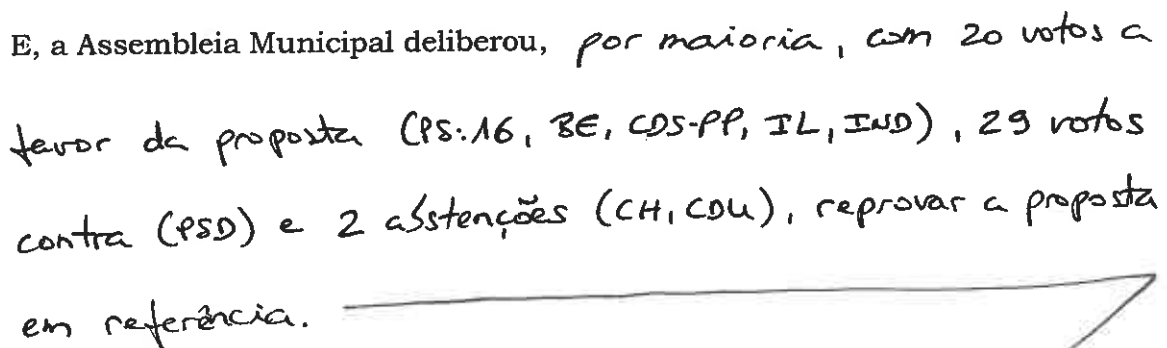 E, a Assembleia Municipal deliberou, por maioria, com 20 votos a
favor da proposta (PS:16, BE, CDS-PP, IL, IND), 29 votos
contra (PSD) e 2 abstenções (CH, CDU), reprovar a proposta
em referência.